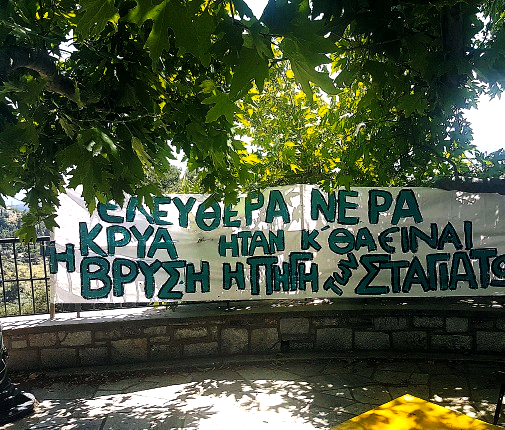 ΕΛΕΥΘΕΡΑ ΝΕΡΑ
Η ΚΡΥΑ ΗΤΑΝ Κ' ΘΑ ΕΙΝΑΙ
ΒΡΥΣΗ Η ΠΗΓΗ των ΣΤΑΓΙΑΤΩ